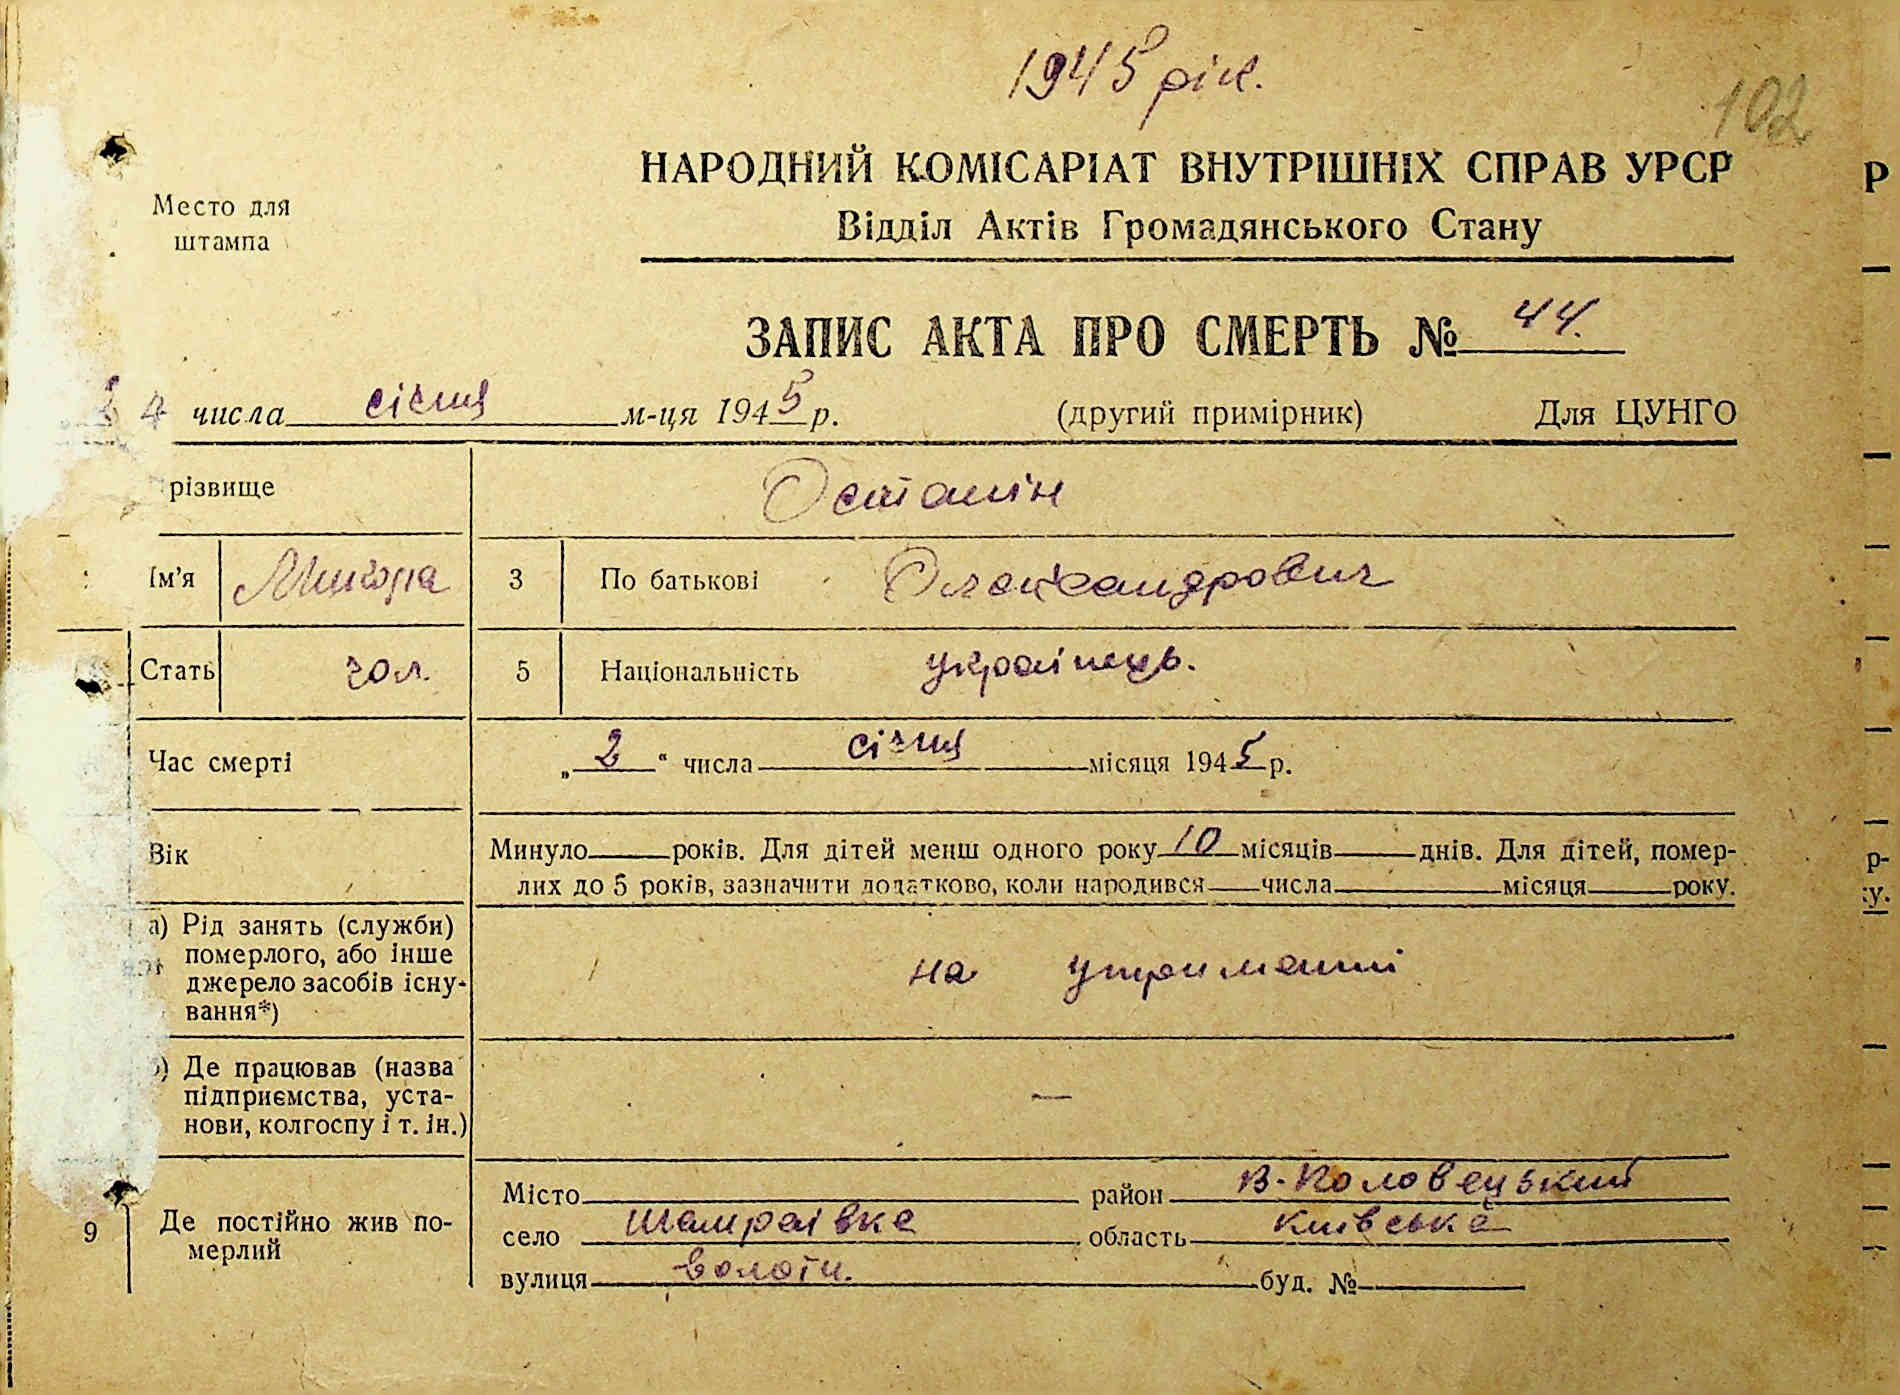 1945 рік.
102
Место для
штампа
НАРОДНИЙ КОМІСАРІАТ ВНУТРІШНІХ СПРАВ УРСР
Відділ Актів Громадянського Стану
ЗАПИС АКТА ПРО СМЕРТЬ № 44.
4 числа січня м-ця 1945 р. (другий примірник) Для ЦУНГО
різвище
Ім’я Микола 3 По батькові Олександрович
Стать чол. 5 Національність українець.
Час смерті „2“ числа січня місяця 1945 р.
Вік Минуло років. Для дітей менш одного року 10 місяців днів. Для дітей, помер-
лих до 5 років, зазначити додатково, коли народився числа місяця року.
а) Рід занять (служби)
померлого, або інше
джерело засобів існу-
вання*)
на утриманні
) Де працював (назва
підприємства, уста-
нови, колгоспу і т. ін.)
—
9 Де постійно жив по-
мерлий
Місто район В-Половецький
село Шамраівка область Київська
вулиця буд. №
Р
р-
у.